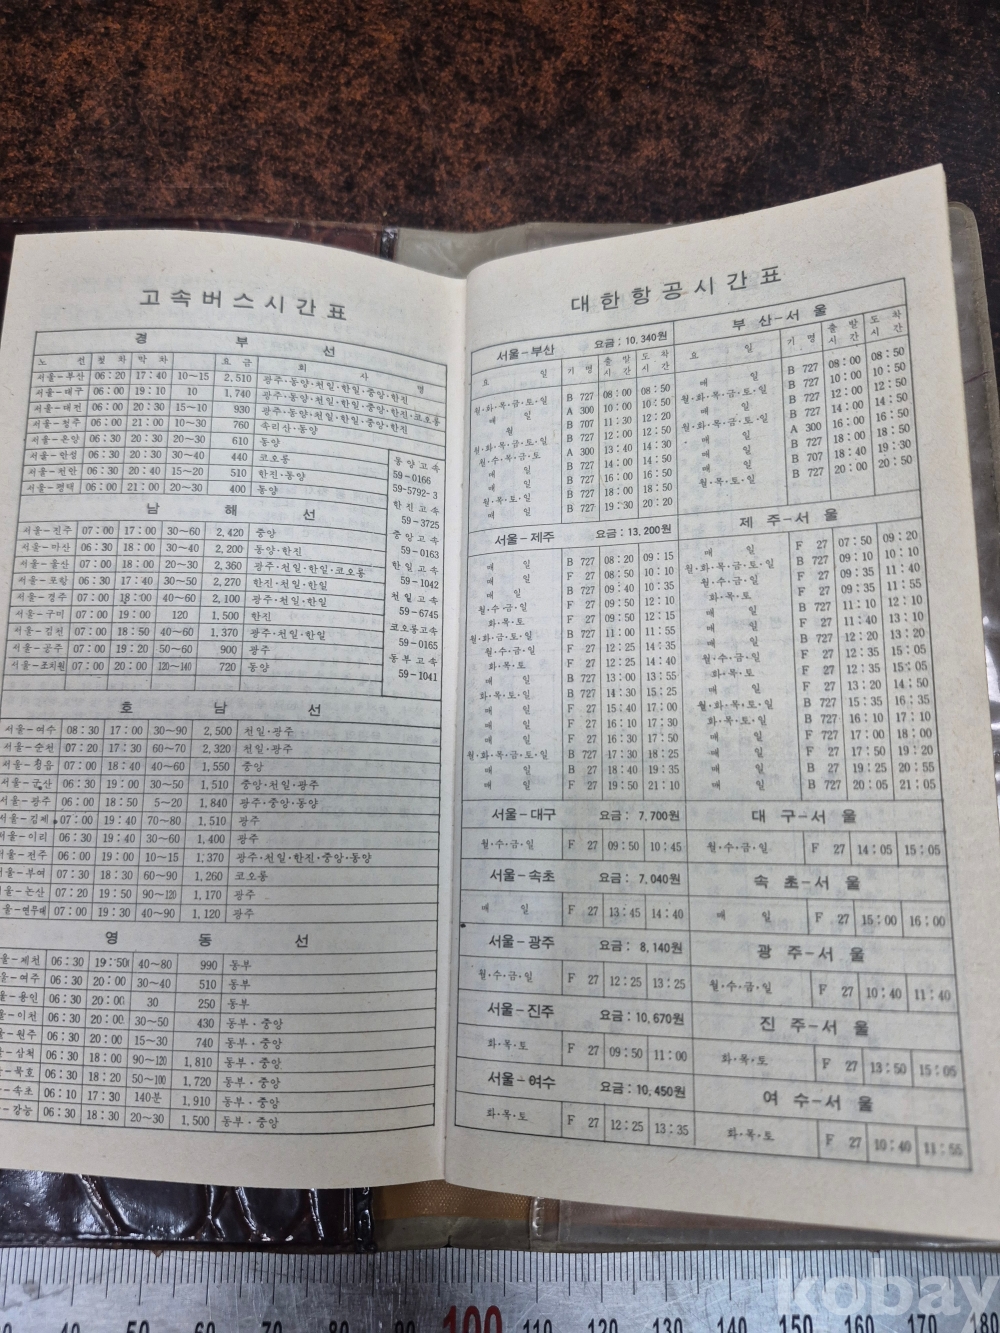 고속버스시간표
경 부 선
노 선 첫 차 막 차 요 금 회 사 명
서울-부산 06:20 17:40 10~15 2,510 광주·동양·천일·한일·중앙·한진
서울-대구 06:00 19:10 10 1,740 광주·동양·천일·한일·중앙·한진·코오롱
서울-대전 06:00 20:30 15~10 930 광주·동양·천일·한일·중앙·한진
서울-청주 06:00 21:00 10~30 760 속리산·동양
서울-온양 06:30 20:30 20~30 610 동양
서울-안성 06:30 20:30 30~40 440 코오롱
서울-천안 06:30 20:40 15~20 510 한진·동양
서울-평택 06:00 21:00 20~30 400 동양
남 해 선
서울-진주 07:00 17:00 30~60 2,420 중앙
서울-마산 06:30 18:00 30~40 2,200 동양·한진
서울-울산 07:00 18:00 20~30 2,360 광주·천일·한일·코오롱
서울-포항 06:30 17:40 30~50 2,270 한진·천일·한일
서울-경주 07:00 18:00 40~60 2,100 광주·천일·한일
서울-구미 07:00 19:00 120 1,500 한진
서울-김천 07:00 18:50 40~60 1,370 광주·천일·한일
서울-공주 07:00 19:20 50~60 900 광주
서울-조치원 07:00 20:00 120~140 720 동양
동양고속
59-0166
59-5792-3
한진고속
59-3725
중앙고속
59-0163
한일고속
59-1042
천일고속
59-6745
코오롱고속
59-0165
동부고속
59-1041
호 남 선
서울-여수 08:30 17:00 30~90 2,500 천일·광주
서울-순천 07:20 17:30 60~70 2,320 천일·광주
서울-정읍 07:00 18:40 40~60 1,550 중앙
서울-군산 06:30 19:00 30~50 1,510 중앙·천일·광주
서울-광주 06:00 18:50 5~20 1,840 광주·중앙·동양
서울-김제 07:00 19:40 70~80 1,510 광주
서울-이리 06:30 19:40 30~60 1,400 광주
서울-전주 06:00 19:00 10~15 1,370 광주·천일·한진·중앙·동양
서울-부여 07:30 18:30 60~90 1,260 코오롱
서울-논산 07:20 19:50 90~120 1,170 광주
서울-연무대 07:00 19:30 40~90 1,120 광주
영 동 선
울-제천 06:30 19:50 40~80 990 동부
울-여주 06:30 20:00 30~40 510 동부
울-용인 06:30 20:00 30 250 동부
울-이천 06:30 20:00 30~50 430 동부·중앙
-원주 06:30 20:00 15~30 740 동부·중앙
-삼척 06:30 18:00 90~120 1,810 동부·중앙
-묵호 06:30 18:20 50~100 1,720 동부·중앙
-속초 06:10 17:30 140분 1,910 동부·중앙
-강능 06:30 18:30 20~30 1,500 동부·중앙
대한항공시간표
서울-부산 요금:10,340원
요 일 기 명 출 발 시 간 도 착 시 간
월·화·목·금·토·일 B 727 08:00 08:50
매 일 A 300 10:00 10:50
월 B 707 11:30 12:20
월·화·목·금·토·일 B 727 12:00 12:50
월·수·목·금·토 A 300 13:40 14:30
매 일 B 727 14:00 14:50
매 일 B 727 16:00 16:50
월·목·토·일 B 727 18:00 18:50
매 일 B 727 19:30 20:20
부 산-서 울
요 일 기 명 출 발 시 간 도 착 시 간
매 일 B 727 08:00 08:50
월·화·목·금·토·일 B 727 10:00 10:50
매 일 B 727 12:00 12:50
월·화·목·금·토·일 B 727 14:00 14:50
매 일 A 300 16:00 16:50
매 일 B 727 18:00 18:50
매 일 B 707 18:40 19:30
월·목·토·일 B 727 20:00 20:50
서울-제주 요금:13,200원
매 일 B 727 08:20 09:15
매 일 F 27 08:50 10:10
매 일 B 727 09:40 10:35
월·수·금·일 F 27 09:50 12:10
화·목·토 F 27 09:50 12:15
월·화·금·토·일 B 727 11:00 11:55
월·수·금·일 F 27 12:25 14:35
화·목·토 F 27 12:25 14:40
매 일 B 727 13:00 13:55
화·목·토·일 B 727 14:30 15:25
매 일 F 27 15:40 17:00
매 일 F 27 16:10 17:30
매 일 F 27 16:30 17:50
월·화·목·금·토·일 B 727 17:30 18:25
매 일 B 27 18:40 19:35
매 일 F 27 19:50 21:10
제 주-서 울
매 일 F 27 07:50 09:20
월·화·목·금·토·일 B 727 09:10 10:10
월·수·금·일 F 27 09:35 11:40
화·목·토 F 27 09:35 11:55
매 일 B 727 11:10 12:10
매 일 F 27 11:40 13:10
매 일 B 727 12:20 13:20
월·수·금·일 F 27 12:35 15:05
화·목·토 F 27 12:35 15:05
매 일 F 27 13:20 14:50
월·화·목·토·일 B 727 15:35 16:35
화·목·토·일 B 727 16:10 17:10
매 일 F 727 17:00 18:00
매 일 F 27 17:50 19:20
매 일 B 27 19:25 20:55
매 일 B 727 20:05 21:05
서울-대구 요금: 7,700원 대 구-서 울
월·수·금·일 F 27 09:50 10:45 월·수·금·일 F 27 14:05 15:05
서울-속초 요금: 7,040원 속 초-서 울
매 일 F 27 13:45 14:40 매 일 F 27 15:00 16:00
서울-광주 요금: 8,140원 광 주-서 울
월·수·금·일 F 27 12:25 13:25 월·수·금·일 F 27 10:40 11:40
서울-진주 요금:10,670원 진 주-서 울
화·목·토 F 27 09:50 11:00 화·목·토 F 27 13:50 15:05
서울-여수 요금:10,450원 여 수-서 울
화·목·토 F 27 12:25 13:35 화·목·토 F 27 10:40 11:55
kobay
40 50 60 70 80 90 100 110 120 130 140 150 160 170 180